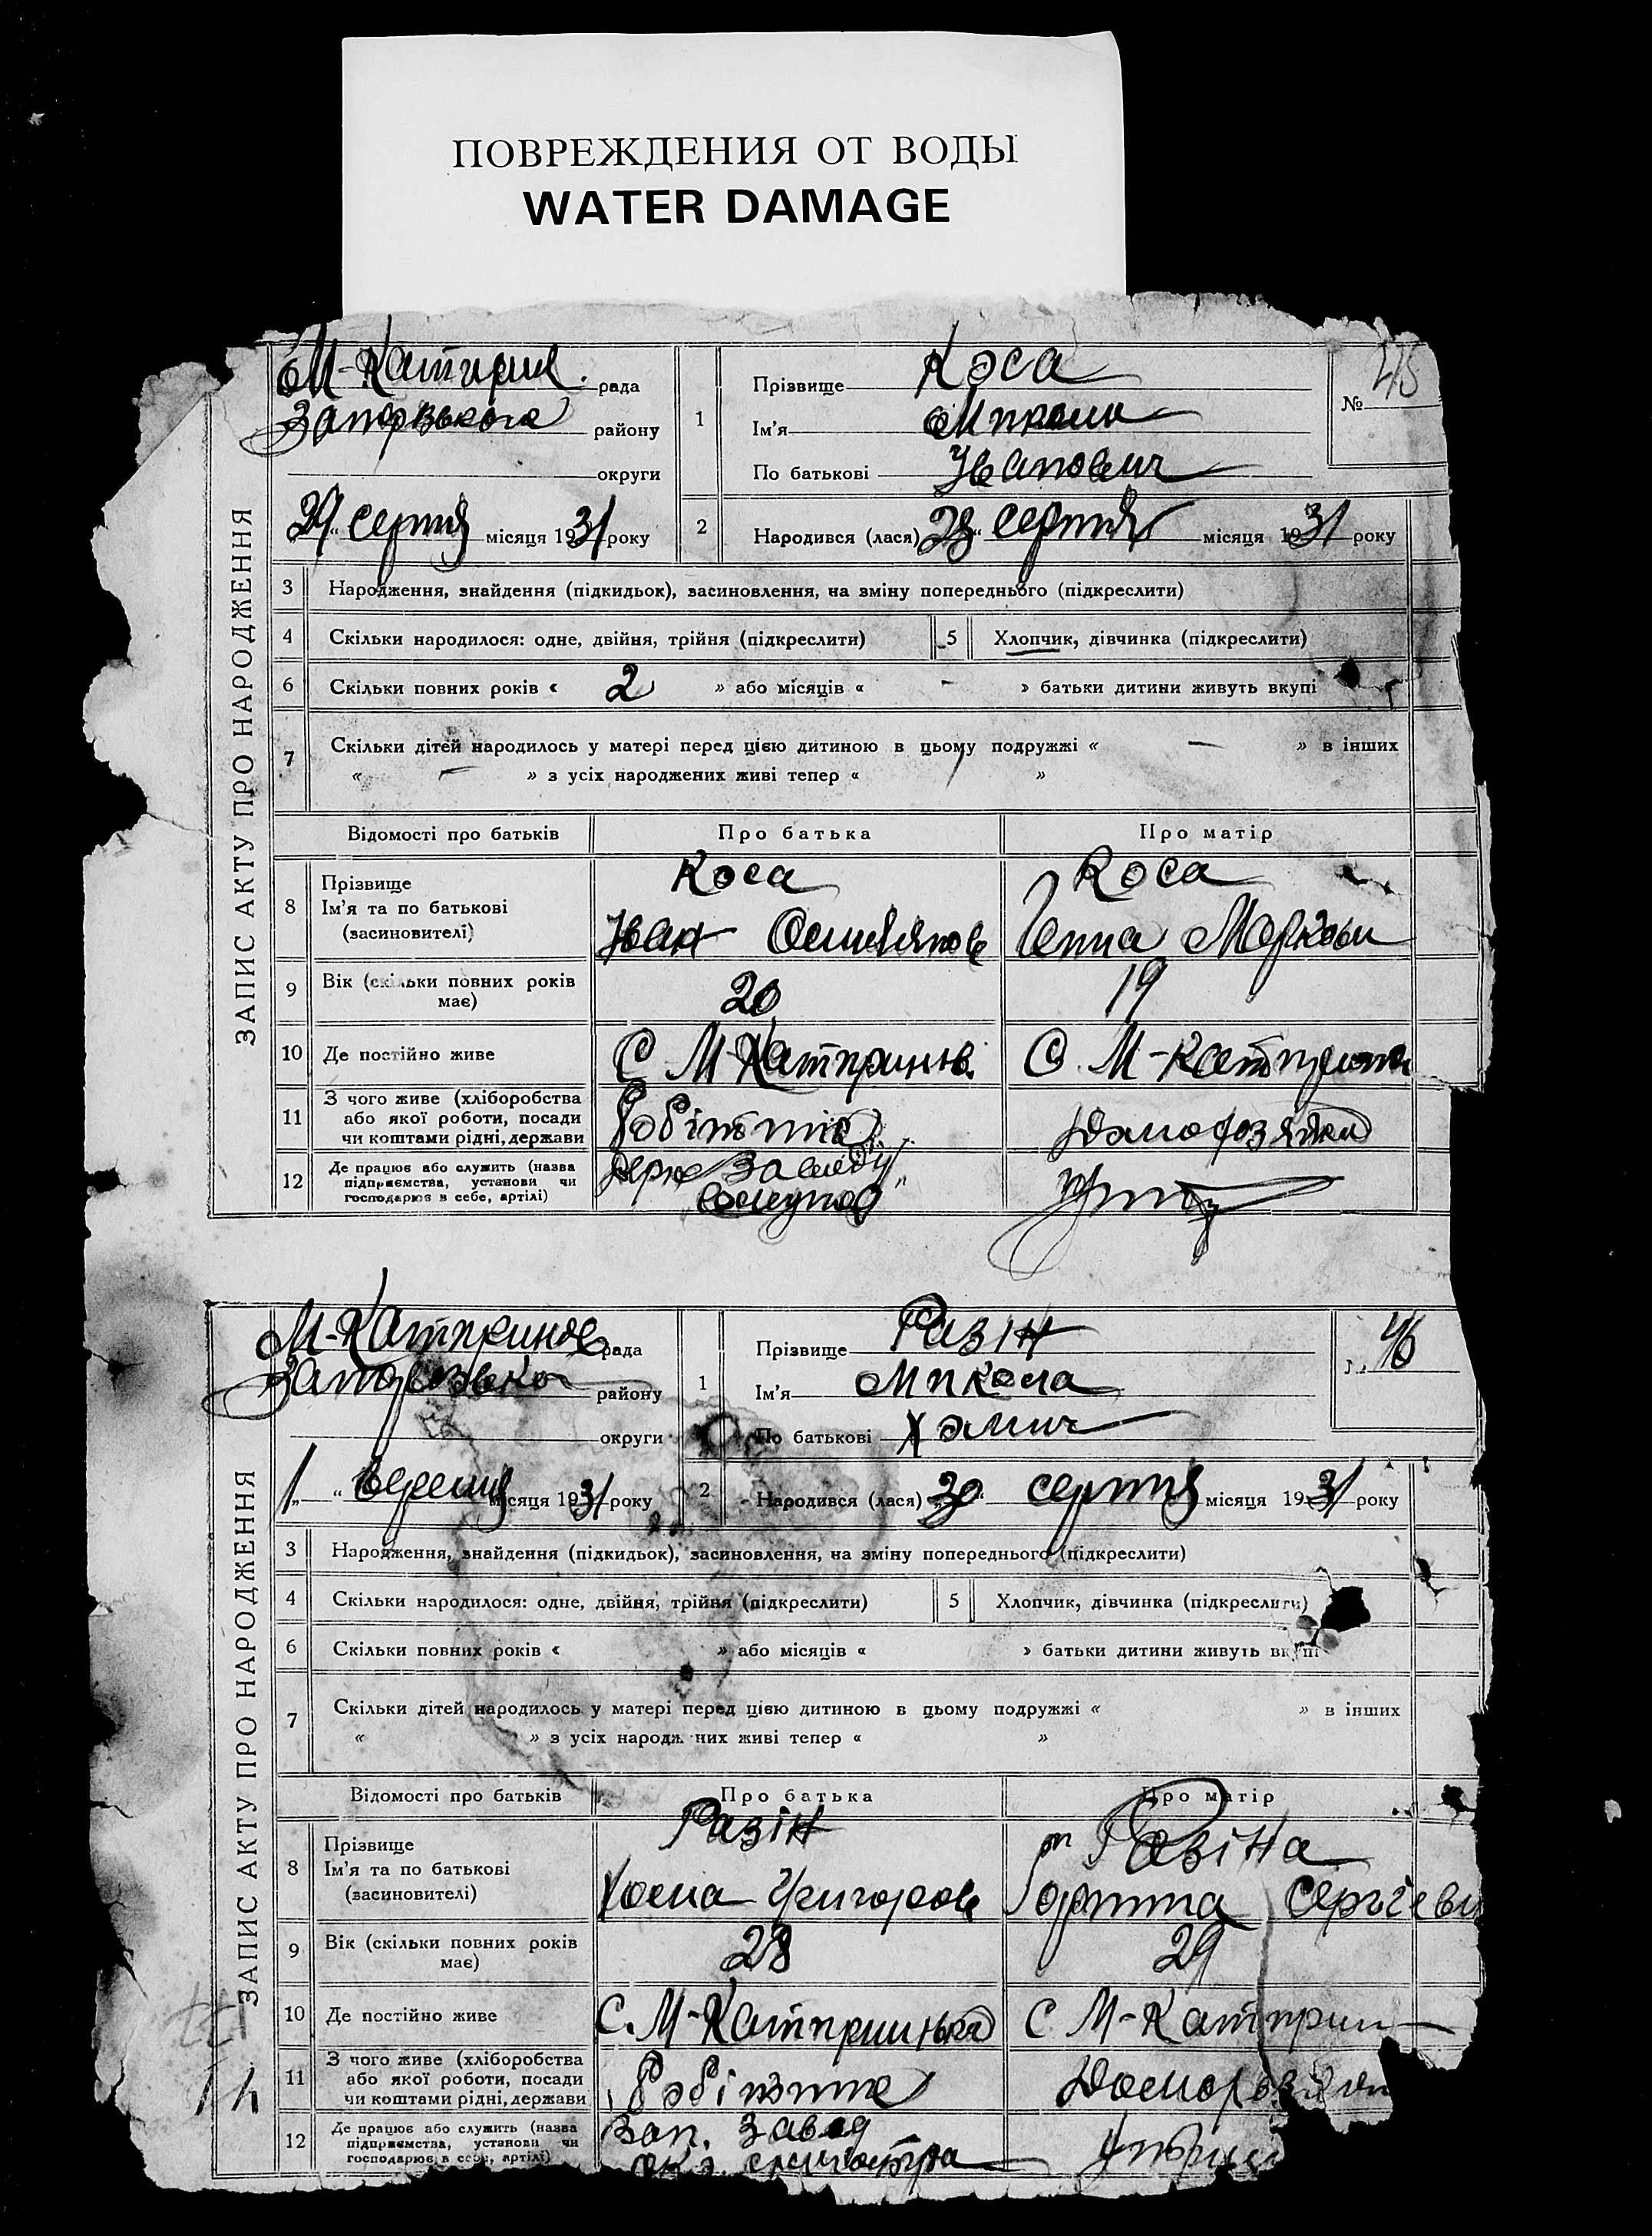 ПОВРЕЖДЕНИЯ ОТ ВОДЫ
WATER DAMAGE
ЗАПИС АКТУ ПРО НАРОДЖЕННЯ
М-Катерин. рада
району
округи
29 серпня місяця 1931 року
1
Прізвище Коса
Ім'я Микола
По батькові Іванович
№ 45
2
Народився (лася) 28 серпня місяця 1931 року
3 Народження, знайдення (підкидьок), засиновлення, на зміну попереднього (підкреслити)
4 Скільки народилося: одне, двійня, трійня (підкреслити)
5 Хлопчик, дівчинка (підкреслити)
6 Скільки повних років « 2 » або місяців « - » батьки дитини живуть вкупі
7 Скільки дітей народилось у матері перед цією дитиною в цьому подружжі « — » в інших
« — » з усіх народжених живі тепер « »
Відомості про батьків Про батька Про матір
8 Прізвище
Ім'я та по батькові
(засиновителі)
Коса
Іван
Коса
Ганна Марков
9 Вік (скільки повних років
має)
20
19
10 Де постійно живе
С М-Катеринів.
С. М-Катерин
11 З чого живе (хліборобства
або якої роботи, посади
чи коштами рідні, держави
Робітник
Домохозяйка
12 Де працює або служить (назва
підприємства, установи чи
господарює в себе, артілі)
Держ
ЗАПИС АКТУ ПРО НАРОДЖЕННЯ
М-Катеринов рада
району
округи
1 " вересня місяця 1931 року
1
Прізвище Разін
Ім'я Микола
По батькові Хомич
№ 46
2
Народився (лася) 30 серпня місяця 1931 року
3 Народження, знайдення (підкидьок), засиновлення, на зміну попереднього (підкреслити)
4 Скільки народилося: одне, двійня, трійня (підкреслити)
5 Хлопчик, дівчинка (підкреслити)
6 Скільки повних років « » або місяців « » батьки дитини живуть вкупі
7 Скільки дітей народилось у матері перед цією дитиною в цьому подружжі « » в інших
« » з усіх народжених живі тепер « »
Відомості про батьків Про батька Про матір
8 Прізвище
Ім'я та по батькові
(засиновителі)
Разін
Хома Григоров
Разіна
Сергіевн
9 Вік (скільки повних років
має)
28
29
10 Де постійно живе
С. М-Катеринівка
С М-Катерин
11 З чого живе (хліборобства
або якої роботи, посади
чи коштами рідні, держави
Робітник
12 Де працює або служить (назва
підприємства, установи чи
господарює в себе, артілі)
Зап. Завод